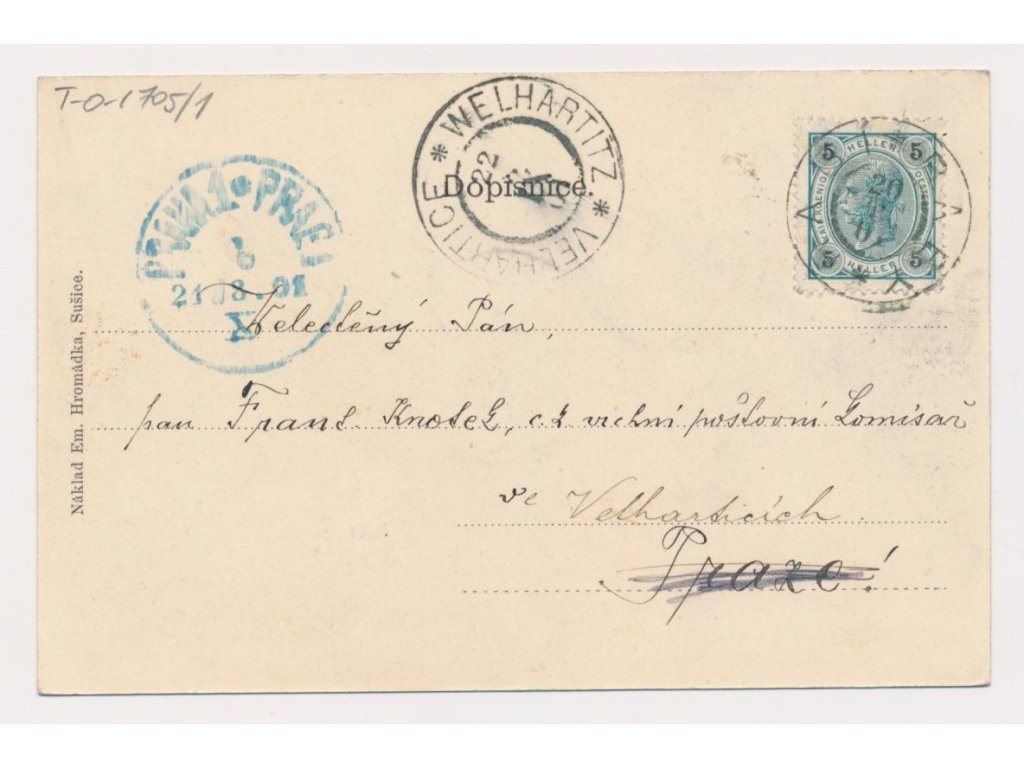 T-O-1705/1
* WELHARTITZ * VELHARTICE
22
Dopisnice.
5 HELLER 5
5 HELLER 5
20
PRAHA 1 * PRAG 1
6
21 8.01
X
Náklad Em. Hromádka, Sušice.
Velectěný Pán,
pan Franz Knotek, c.k. vrchní poštovní komisař
ve Velharticích
Praze!